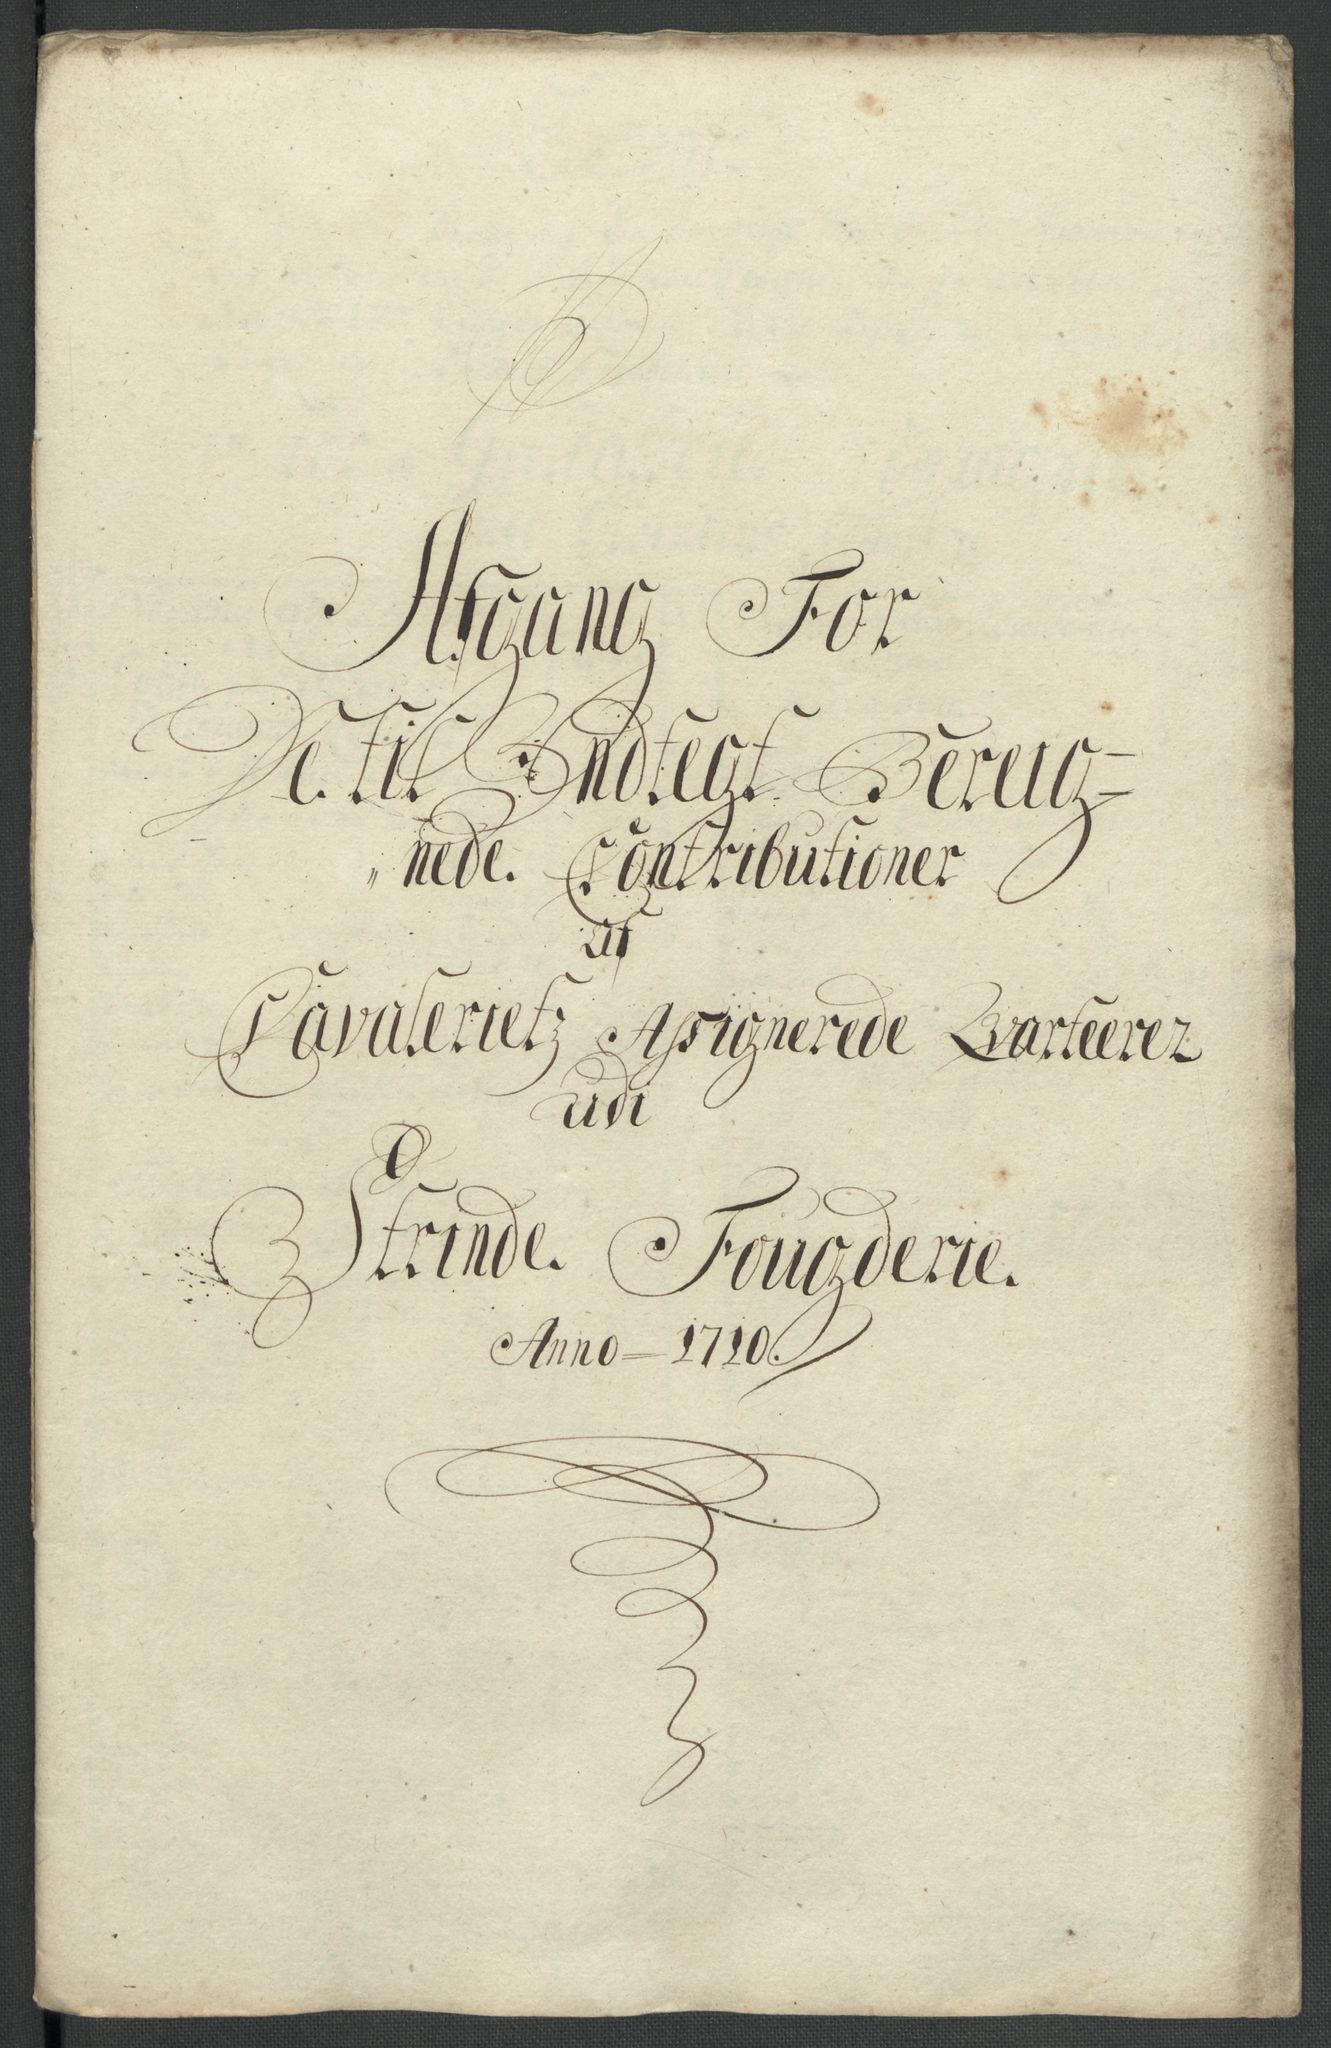 Afgang For
De til Indtegt Bereig=
„nede. Contributioner
af
Cavalerietz Assignerede Qvarteerer
udi
Strinde. Fougderie.
Anno— 1710.